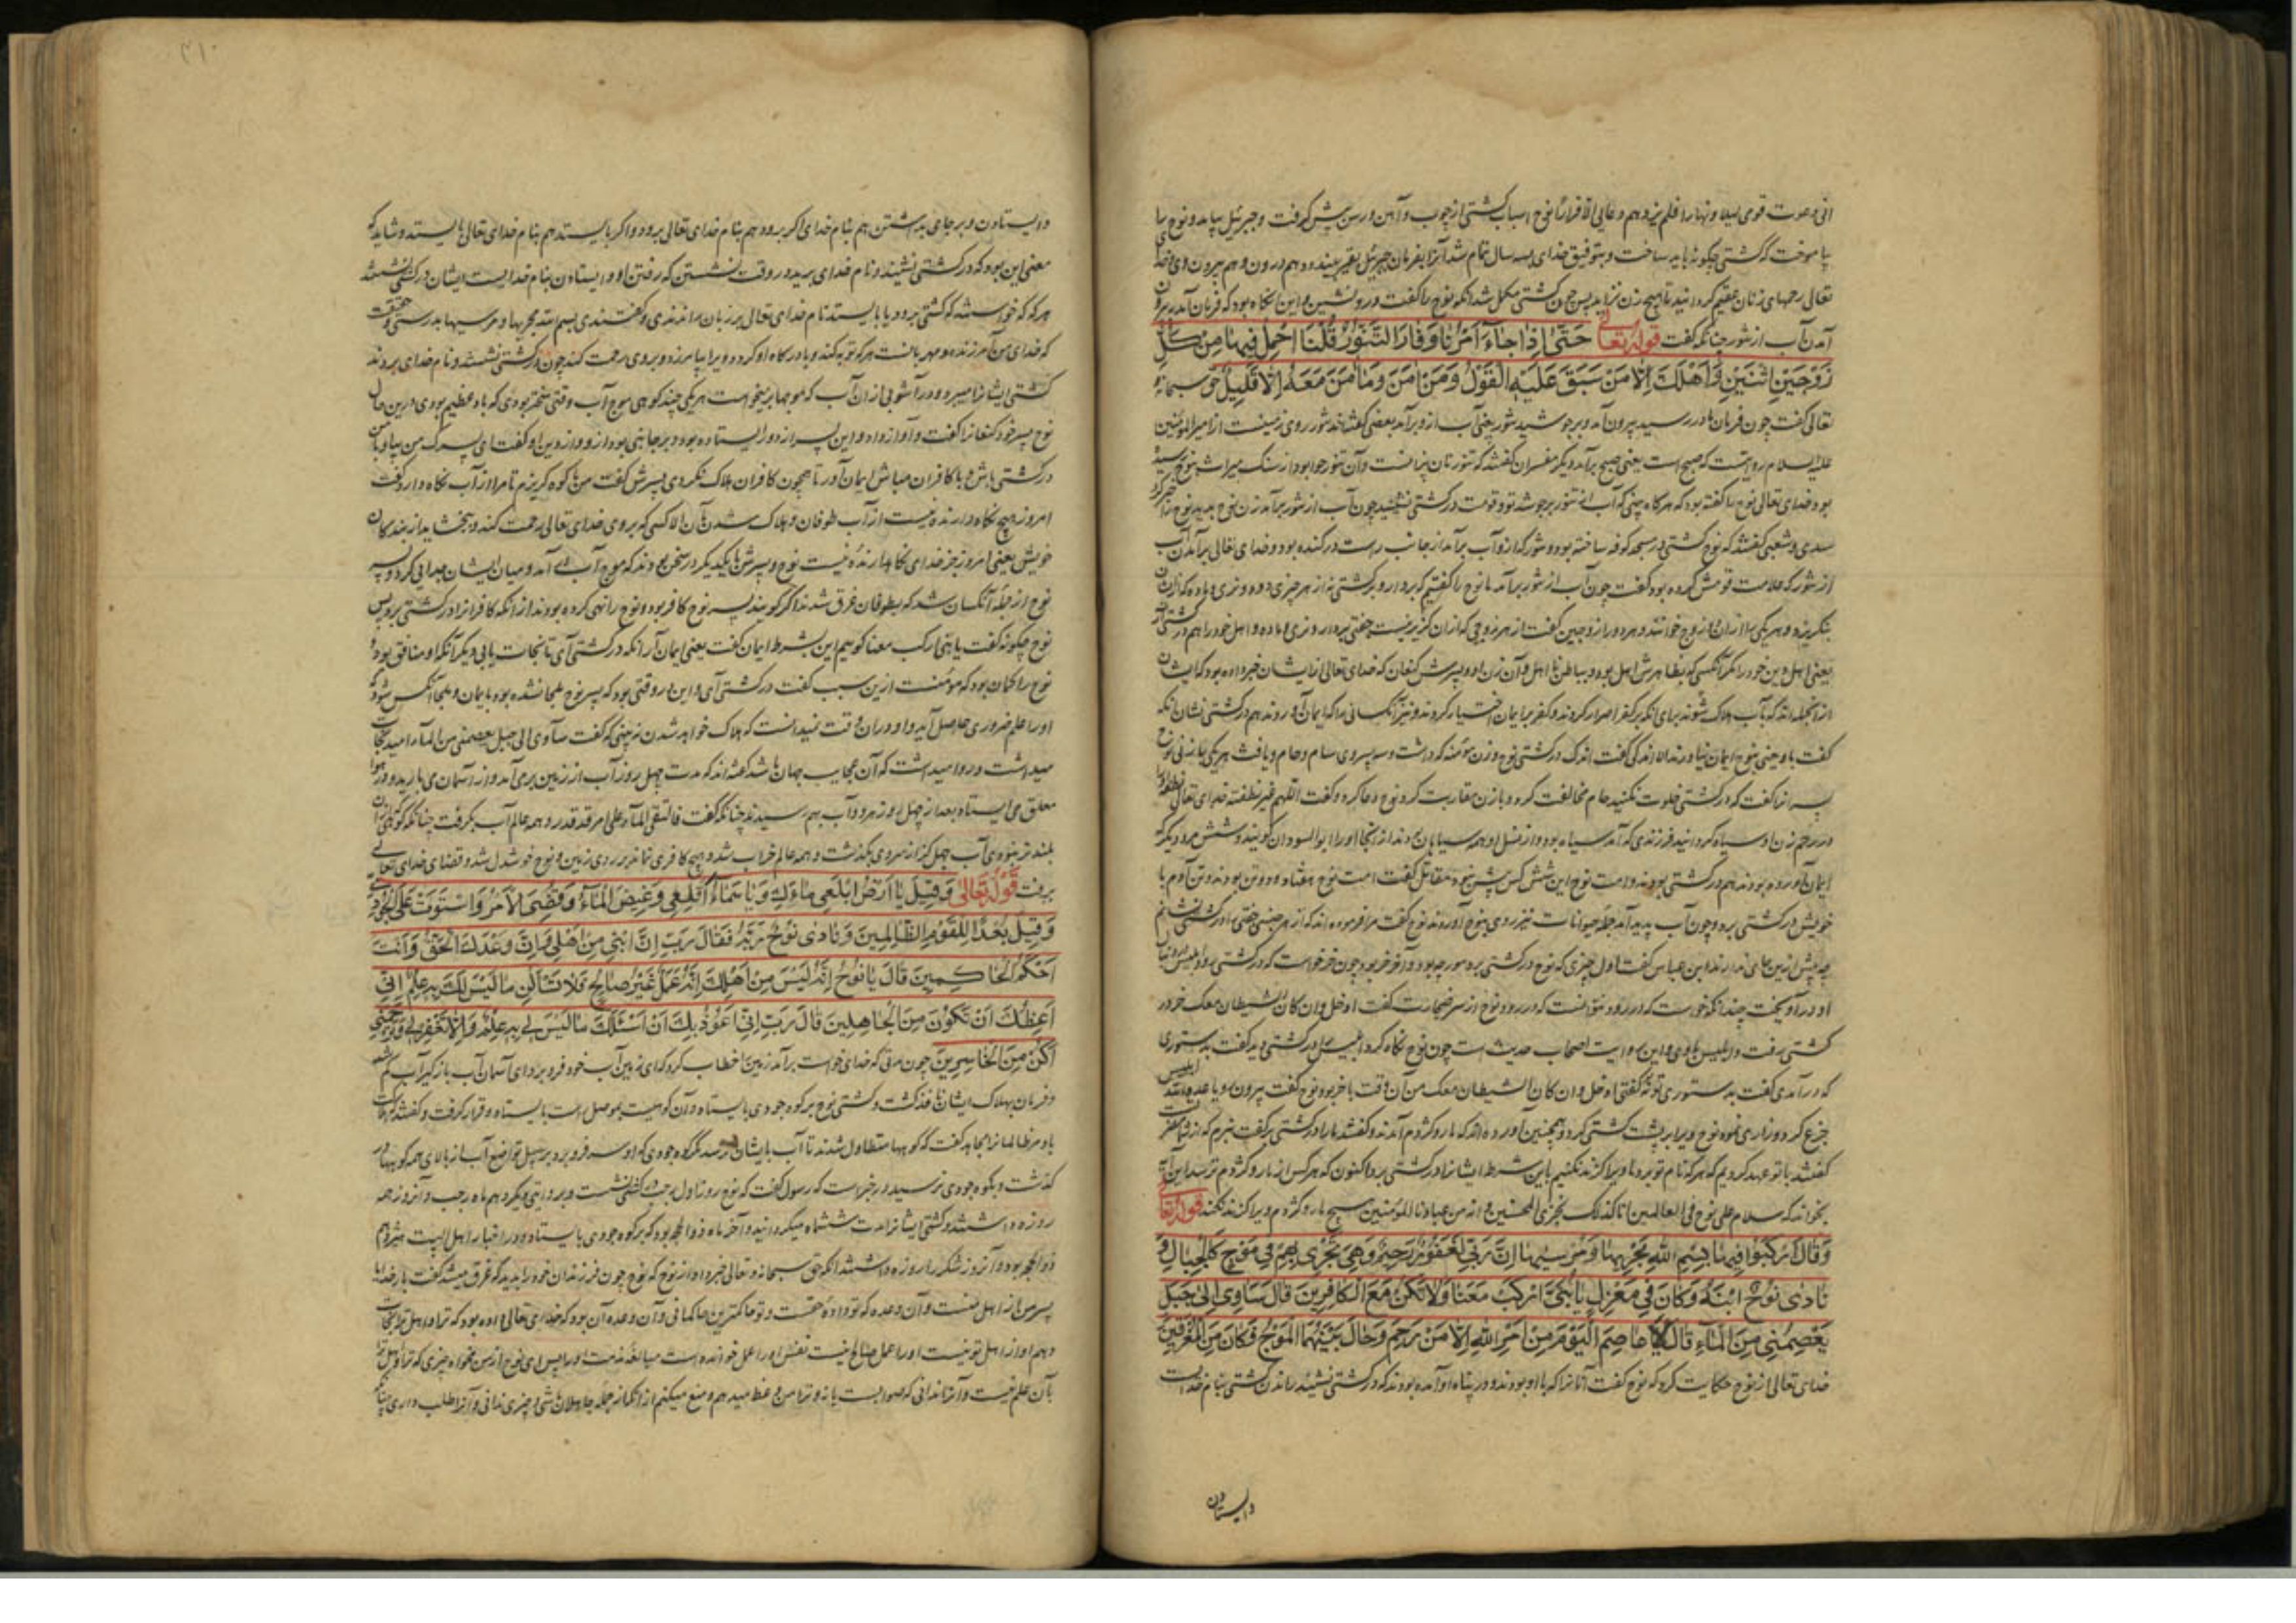 انی دعوت قومی لیلا و نهارا فلم یزدهم دعایی الا فرارا نوح اسباب کشتی از چوب و آهن و رسن پیش گرفت و جبرئیل بیامد و نوح را
بیاموخت که کشتی چگونه باید ساخت و بتوفیق خدای سه سال تمام شد آنرا بفرمان جبرئیل بقیر بیندود هم درون و هم بیرون وی
تعالی رحمهای زنان عقیم گردانید تا هیچ زن نزاید پس چون کشتی مکمل شد آنکه نوح را گفت در و نشین و این آنگاه بود که فرمان آمد
آمدن آب از تنور چنانکه گفت قوله تعالی حَتّٰی اِذَا جَاءَ اَمْرُنَا وَفَارَ التَّنُّورُ قُلْنَا احْمِلْ فِيهَا مِنْ كُلٍّ
زَوْجَيْنِ اثْنَيْنِ وَاَهْلَكَ اِلَّا مَنْ سَبَقَ عَلَيْهِ الْقَوْلُ وَمَنْ اٰمَنَ وَمَا اٰمَنَ مَعَهُ اِلَّا قَلِيلٌ حق سبحانه و
تعالی گفت چون فرمان ما در رسید بیرون آمد و برجوشید تنور یعنی آب ازو برآمد بعضی گفته‌اند تنور روی زمینست از امیرالمؤمنین
علیه السلام روایتست که صبح است یعنی صبح برآمد و دیگر مفسران گفتند که تنور نان پزانست و آن تنور حوا بود از سنگ میراث بنوح رسیده
بود خدای تعالی نوح را گفته بود که هرگاه بینی که آب از تنور برجوشد تو و قومت در کشتی نشینید چون آب از تنور برآمد زن نوح بدید نوح را خبر کرد
سدی و شعبی گفتند که نوح کشتی در مسجد کوفه ساخته بود و تنور که ازو آب برآمد از جانب راست در کنده بود و خدای تعالی برآمدن آب
از تنور که علامت قومش کرده بود گفت چون آب از تنور برآمد ما نوح را گفتیم که بردار و بر کشتی نه از هر چیزی دو دو نری و ماده
یعنی اهل دین خود را مگر آنکسی که بظاهرش اهل بود و بباطن نااهل و آن زن او و پسرش کنعان که خدای تعالی از ایشان خبر داده بود که ایشان
از آنجمله‌اند که بآب هلاک شوند برای آنکه بر کفر اصرار کردند و کفر بر ایمان اختیار کردند و نیز آنکسانی را که ایمان آوردند هم در کشتی نشان آنکه
گفت با و یعنی بنوح ایمان نیاوردند الا اندکی گفت اندک در کشتی نوح و زن مؤمنه که داشت و سه پسر وی سام و حام و یافث هر یکی با زنی نوح
پسرانرا گفت که در کشتی خلوت نکنید حام مخالفت کرد و با زن مقاربت کرد نوح دعا کرد و گفت اللهم غیر نطفته خدای تعالی
در رحم زن او سیاه گردانید فرزندی که آمد سیاه بود و از نسل او همه سیاهان بودند از آنجا او را ابوالسودان گویند و شش مرد دیگر که
ایمان آورده بودند هم در کشتی بودند و امت نوح این شش کس بیش نبود مقاتل گفت امت نوح هفتاد و دو تن بودند و تن آدم با
خویش در کشتی برد و چون آب پدید آمد جمله حیوانات نیز روی بنوح آوردند نوح گفت مرا فرموده‌اند که از هر جنسی جفتی در کشتی نشانم
چه بیش ازین جای ندارند ابن عباس گفت اول چیزی که نوح در کشتی برد مورچه بود و آخر خر بود چون خر خواست که در کشتی رود ابلیس
او در آویخت چندانکه خواست که در رود نتوانست که در رود نوح از سر ضجارت گفت ادخل و ان کان الشیطان معک خر در
کشتی رفت و ابلیس با وی و این روایت اصحاب حدیث است چون نوح نگاه کرد ابلیس را در کشتی دید گفت بدستوری
که در آمدی گفت بدستوری تو نه گفتی ادخل و ان کان الشیطان معک من آن وقت با خر بودم نوح گفت بیرون رو یا عدو الله ابلیس
جزع کرد و زاری نمود نوح ویرا بر پشت کشتی کرد و همچنین آورده‌اند که مار و کژدم آمدند و گفتند ما را در کشتی بر گفت نبرم که از شما
گفتند با تو عهد کردیم که هرکه نام تو برد ما ویرا گزند نکنیم باین شرط ایشانرا در کشتی برد اکنون که هرکس از مار و کژدم ترسد این آیت
بخواند که سلام علی نوح فی العالمین انا کذلک نجزی المحسنین انه من عبادنا المؤمنین هیچ مار و کژدم ویرا گزند نکند قوله تعالی
وَقَالَ ارْكَبُوا فِيهَا بِسْمِ اللّٰهِ مَجْرٰيهَا وَمُرْسٰيهَا اِنَّ رَبِّي لَغَفُورٌ رَحِيمٌ وَهِيَ تَجْرِي بِهِمْ فِي مَوْجٍ كَالْجِبَالِ وَ
نَادٰى نُوحٌ ابْنَهُ وَكَانَ فِي مَعْزِلٍ يَا بُنَيَّ ارْكَبْ مَعَنَا وَلَا تَكُنْ مَعَ الْكَافِرِينَ قَالَ سَاٰوِي اِلٰى جَبَلٍ
يَعْصِمُنِي مِنَ الْمَاءِ قَالَ لَا عَاصِمَ الْيَوْمَ مِنْ اَمْرِ اللّٰهِ اِلَّا مَنْ رَحِمَ وَحَالَ بَيْنَهُمَا الْمَوْجُ فَكَانَ مِنَ الْمُغْرَقِينَ
خدای تعالی از نوح حکایت کرد که نوح گفت آنانرا که با او بودند و در پناه او آمده بودند که در کشتی نشینید راندن کشتی بنام خداست
وایستادن
۳۱۰
وایستادن و بر جای بداشتن هم بنام خدای اگر برود هم بنام خدای تعالی برود و اگر بایستد هم بنام خدای تعالی بایستد و شاید که
معنی این بود که در کشتی نشینید و نام خدای برید در وقت نشستن که رفتن او و ایستادن بنام خدایست ایشان در کشتی نشستند
هرگه که خواستند که کشتی برود یا بایستد نام خدای تعالی بر زبان راندندی و گفتندی بسم الله مجریها و مرسیها
که خدای من آمرزنده و مهربانست هرکه توبه کند و با درگاه او گردد ویرا بیامرزد و بر وی رحمت کند چون در کشتی نشستند و نام خدای بردند
کشتی ایشانرا میبرد و در آشوبی از آن آب که موجها برمیخواست هر یکی چند کوهی موج آب وقتی سختر بودی که باد عظیم بودی درین حال
نوح پسر خود کنعانرا گفت و آواز داد و این پسر از دور ایستاده بود و بر جانبی بود ازو و از دین او گفت ای پسرک من بیا و با من
در کشتی باش و با کافران مباش ایمان آور تا همچون کافران هلاک نگردی پسرش گفت من با کوه گریزم تا مرا از آب نگاه دارد گفت
امروز هیچ نگاه دارنده نیست از آب طوفان و هلاک شدن بآن الا کسی که بر وی خدای تعالی رحمت کند و ببخشاید از بندگان
خویش یعنی امروز جز خدای نگاهدارنده نیست نوح و پسرش با یکدیگر در سخن بودند که موج آب در آمد و میان ایشان جدایی کرد و پسر
نوح از جمله آنکسان شد که بطوفان غرق شدند اگر گویند پسر نوح کافر بود و نوح را نهی کرده بودند از آنکه کافرانرا در کشتی برد پس
نوح چگونه گفت یا بنی ارکب معنا گوییم این بشرط ایمان گفت یعنی ایمان آر آنکه در کشتی آی تا نجات یابی و دیگر آنکه او منافق بود و
نوح را گمان بود که مؤمنست ازین سبب گفت در کشتی آی و این در وقتی بود که پسر نوح ملجا نشده بود بایمان و ملجا آنکس شود که
او را علم ضروری حاصل آید و او در آن وقت نمیدانست که هلاک خواهد شدن نه بینی که گفت سآوی الی جبل یعصمنی من الماء امید نجات
میداشت و روا میداشت که آن عجایب جهان باشد گفته‌اند که مدت چهل روز آب از زمین بر می آمد و از آسمان می بارید و در هوا
معلق می ایستاد بعد از چهل روز هر دو آب بهم رسیدند چنانکه گفت فالتقی الماء علی امر قد قدر و همه عالم آب بگرفت چنانکه
بلندتر نبود آب چهل گز از سر وی بگذشت و همه عالم خراب شد و هیچ کافری نماند بر روی زمین و نوح خوشدل شد و قضای خدای تعالی
برفت قوله تعالی وَقِيلَ يَا اَرْضُ ابْلَعِي مَاءَكِ وَيَا سَمَاءُ اَقْلِعِي وَغِيضَ الْمَاءُ وَقُضِيَ الْاَمْرُ وَاسْتَوَتْ عَلَى الْجُودِيِّ
وَقِيلَ بُعْدًا لِلْقَوْمِ الظَّالِمِينَ وَنَادٰى نُوحٌ رَبَّهُ فَقَالَ رَبِّ اِنَّ ابْنِي مِنْ اَهْلِي وَاِنَّ وَعْدَكَ الْحَقُّ وَاَنْتَ
اَحْكَمُ الْحَاكِمِينَ قَالَ يَا نُوحُ اِنَّهُ لَيْسَ مِنْ اَهْلِكَ اِنَّهُ عَمَلٌ غَيْرُ صَالِحٍ فَلَا تَسْاَلْنِ مَا لَيْسَ لَكَ بِهِ عِلْمٌ اِنِّي
اَعِظُكَ اَنْ تَكُونَ مِنَ الْجَاهِلِينَ قَالَ رَبِّ اِنِّي اَعُوذُ بِكَ اَنْ اَسْئَلَكَ مَا لَيْسَ لِي بِهِ عِلْمٌ وَاِلَّا تَغْفِرْ لِي وَتَرْحَمْنِي
اَكُنْ مِنَ الْخَاسِرِينَ چون مدتی که خدای خواست برآمد زمین را خطاب کرد که ای زمین آب خود فرو بر و ای آسمان آب بازگیر آب کم شد
و فرمان بهلاک ایشان نافذ گشت و کشتی نوح بر کوه جودی بایستاد و آن کوهیست بموصل است بایستاد و قرار گرفت و گفتند که
باد مر ظالمانرا مجاهد گفت که کوهها متطاول شدند تا آب بایشان نرسد مگر کوه جودی که او سر فرو برد بر سبیل تواضع آب از بالای همه کوهها در
گذشت و بکوه جودی نرسید و در خبرست که رسول گفت که نوح روز اول رجب در کشتی نشست و بروایتی دیگر دهم ماه رجب و آنروز همه
روزه داشتند و کشتی ایشانرا مدت ششماه میگردانید و آخر ماه ذوالحجه بود که بر کوه جودی بایستاد و در اخبار اهل البیت هژدهم
ذوالحجه بود و آنروز شکر را روزه داشتند آنگه حق سبحانه و تعالی خبر داد از نوح که نوح چون فرزندان خود را بدید که غرق میشد گفت بار خدایا
پسر من از اهل منست و آن وعده که تو داده حقست و تو حاکمترین حاکمانی و آن وعده آن بود که خدای تعالی داده بود که ترا و اهل ترا نجات
دهم او از اهل تو نیست او را عمل صالح نیست نفس او را عمل خوانده است مبالغه مذمت او را پس ای نوح از من مخواه چیزی که ترا
بآن علم نیست و آنرا ندانی که صوابست یا نه و ترا من وعظ میدهم و منع میکنم از آنکه از جمله جاهلان باشی و چیزی ندانی و آنرا طلب داری